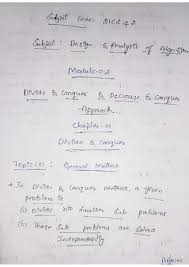 Subject code:
Subject : Design & Analysis of Algorithm
Module-02
Divide & conquer & Decrease & Conquer
Approach
Chapter-01
Divide & conquer
Topic-01 : General method
In Divide & conquer method, a given
problem is
(i) divide into smaller sub problems
(ii) These sub problems are solved
independently